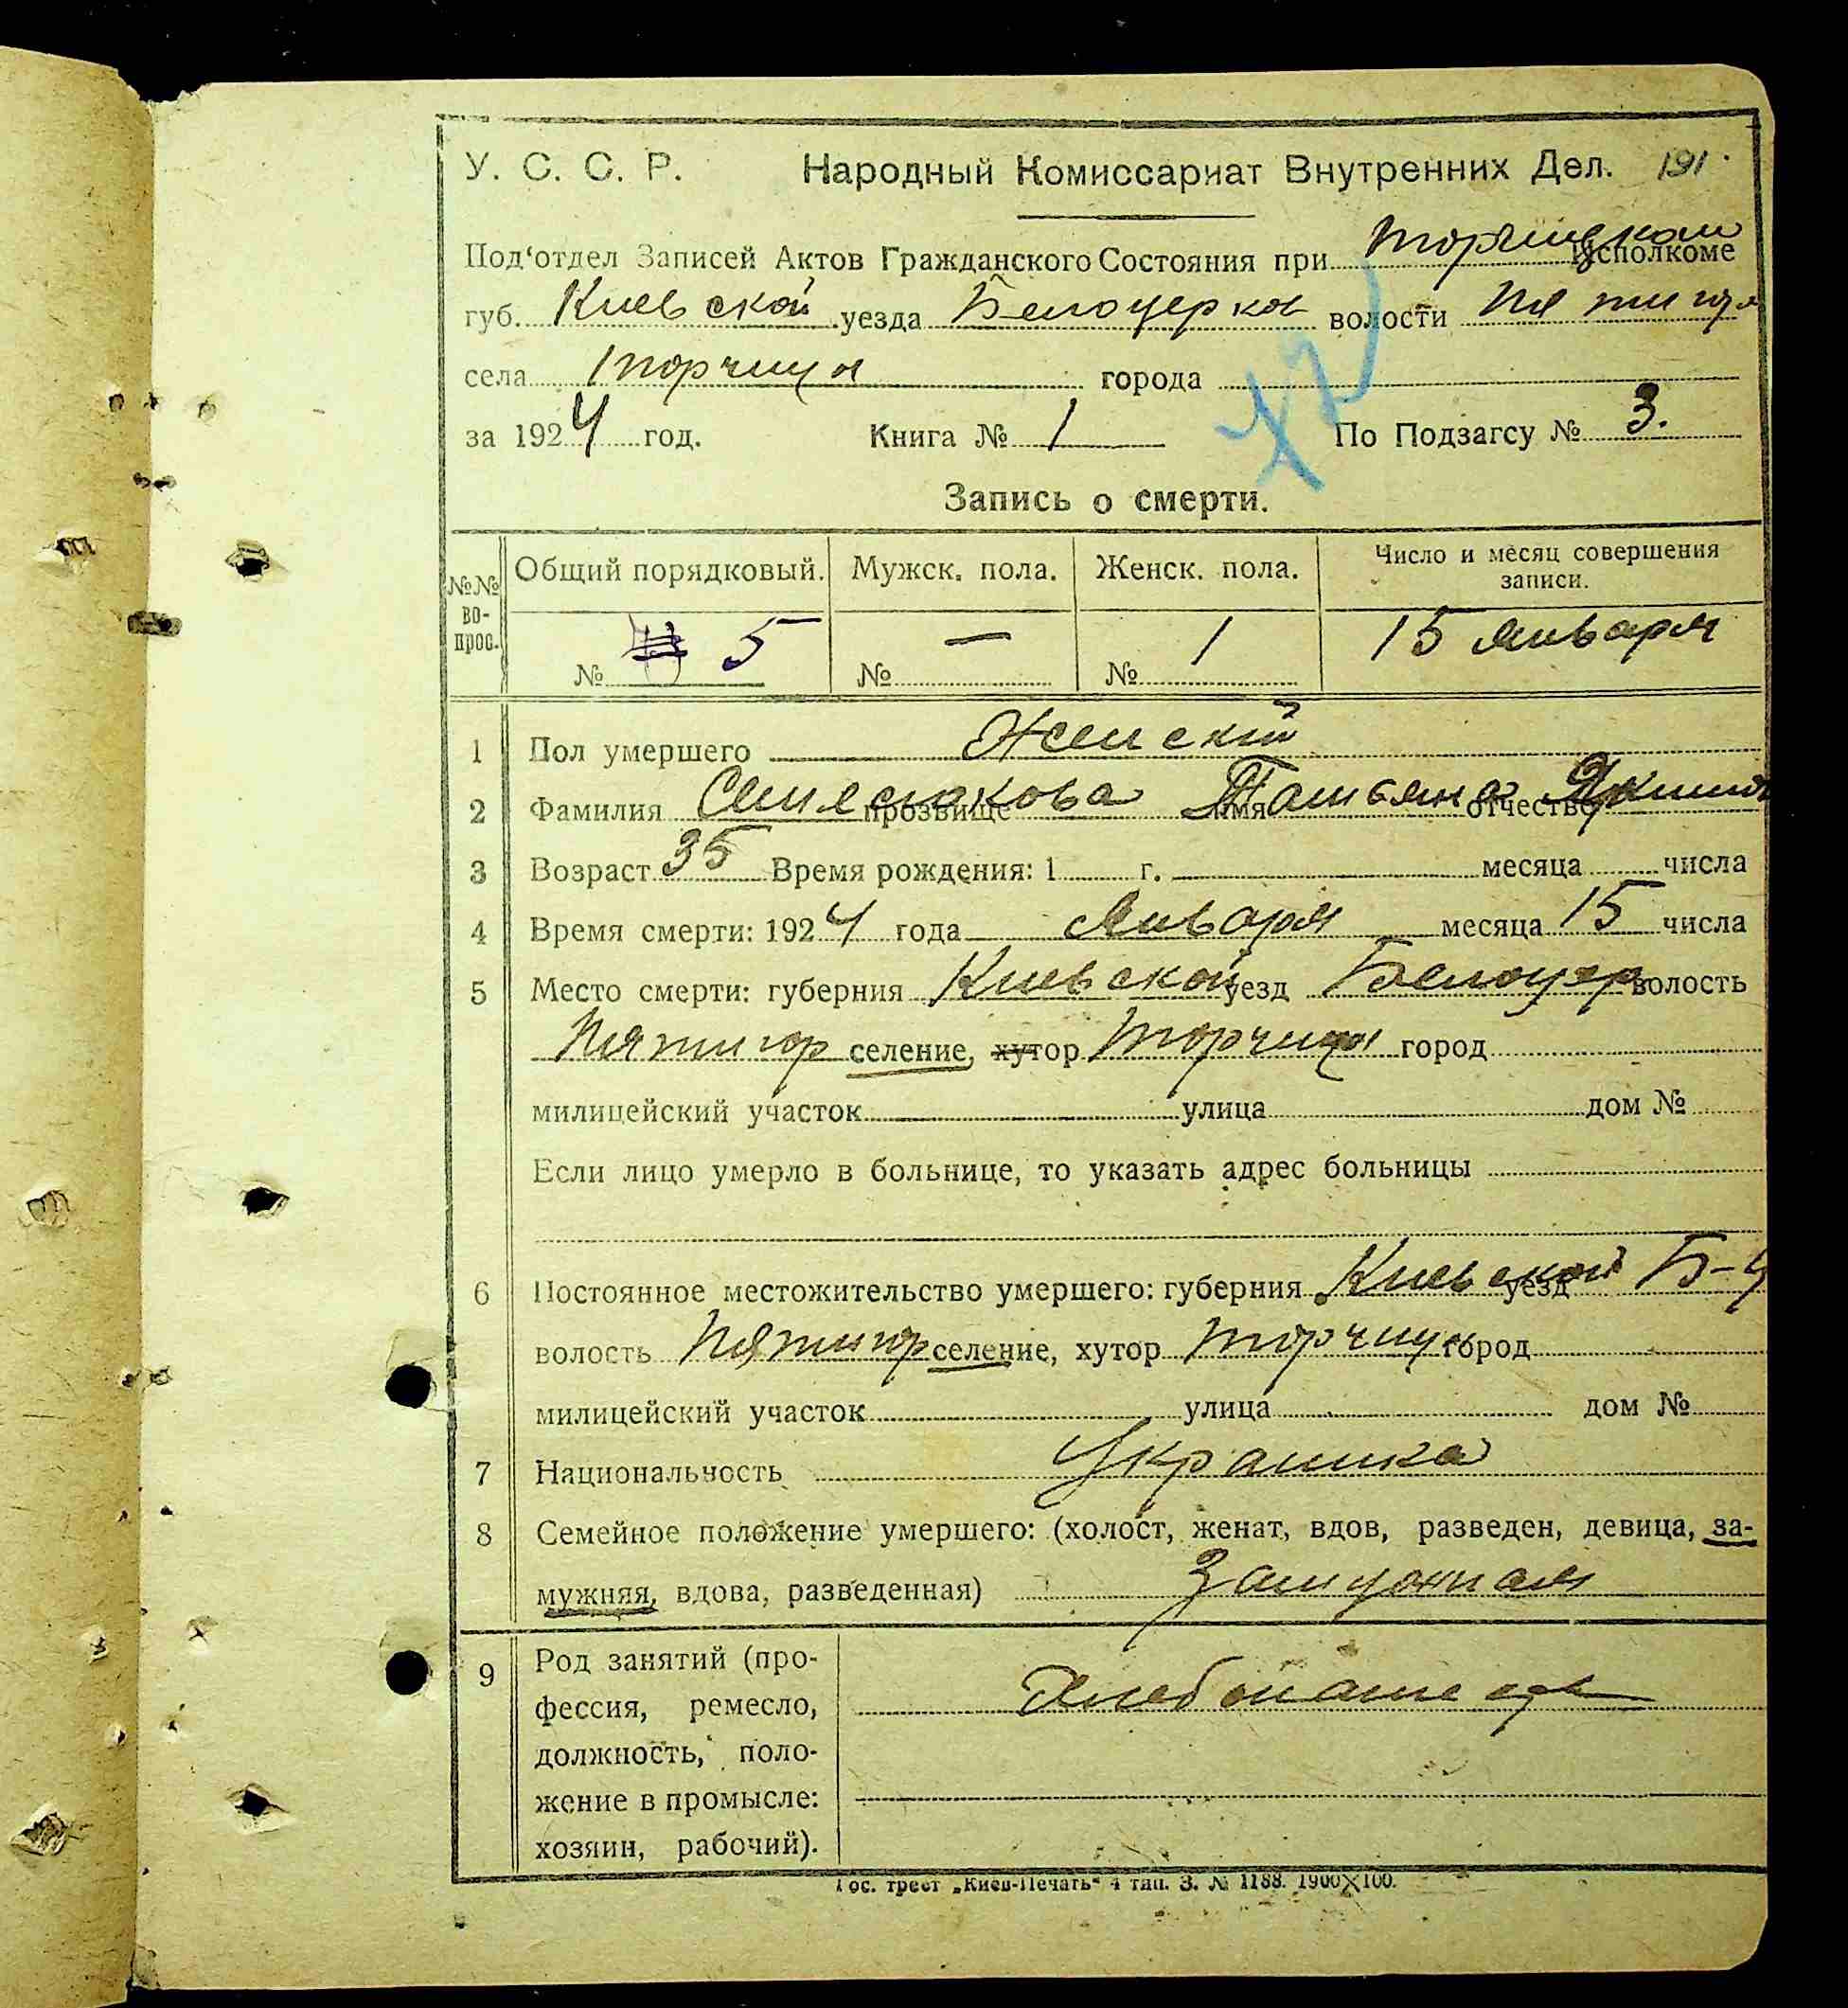 У. С. С. Р. Народный Комиссариат Внутренних Дел. 191
Под'отдел Записей Актов Гражданского Состояния при Торчицком Исполкоме
губ. Киевской уезда Белоцерков волости Пятигор
села Торчица города
за 1924 год. Книга № 1 По Подзагсу № 3.
Запись о смерти.
№№ вопрос. Общий порядковый. Мужск. пола. Женск. пола. Число и месяц совершения записи.
№ 5 № — № 1 15 января
1 Пол умершего Женский
2 Фамилия прозвище имя Татьяна отчество
3 Возраст 35 Время рождения: 1 г. месяца числа
4 Время смерти: 1924 года Января месяца 15 числа
5 Место смерти: губерния Киевской уезд Белоцер волость
Пятигор селение, хутор Торчица город
милицейский участок улица дом №
Если лицо умерло в больнице, то указать адрес больницы
6 Постоянное местожительство умершего: губерния Киевской уезд Б-Ц
волость Пятигор селение, хутор Торчица город
милицейский участок улица дом №
7 Национальность Украинка
8 Семейное положение умершего: (холост, женат, вдов, разведен, девица, за-
мужняя, вдова, разведенная) Замужная
9 Род занятий (про-
фессия, ремесло,
должность, поло-
жение в промысле:
хозяин, рабочий).
Гос. трест „Киев-Печать" 4 тип. З. № 1188. 1900×100.